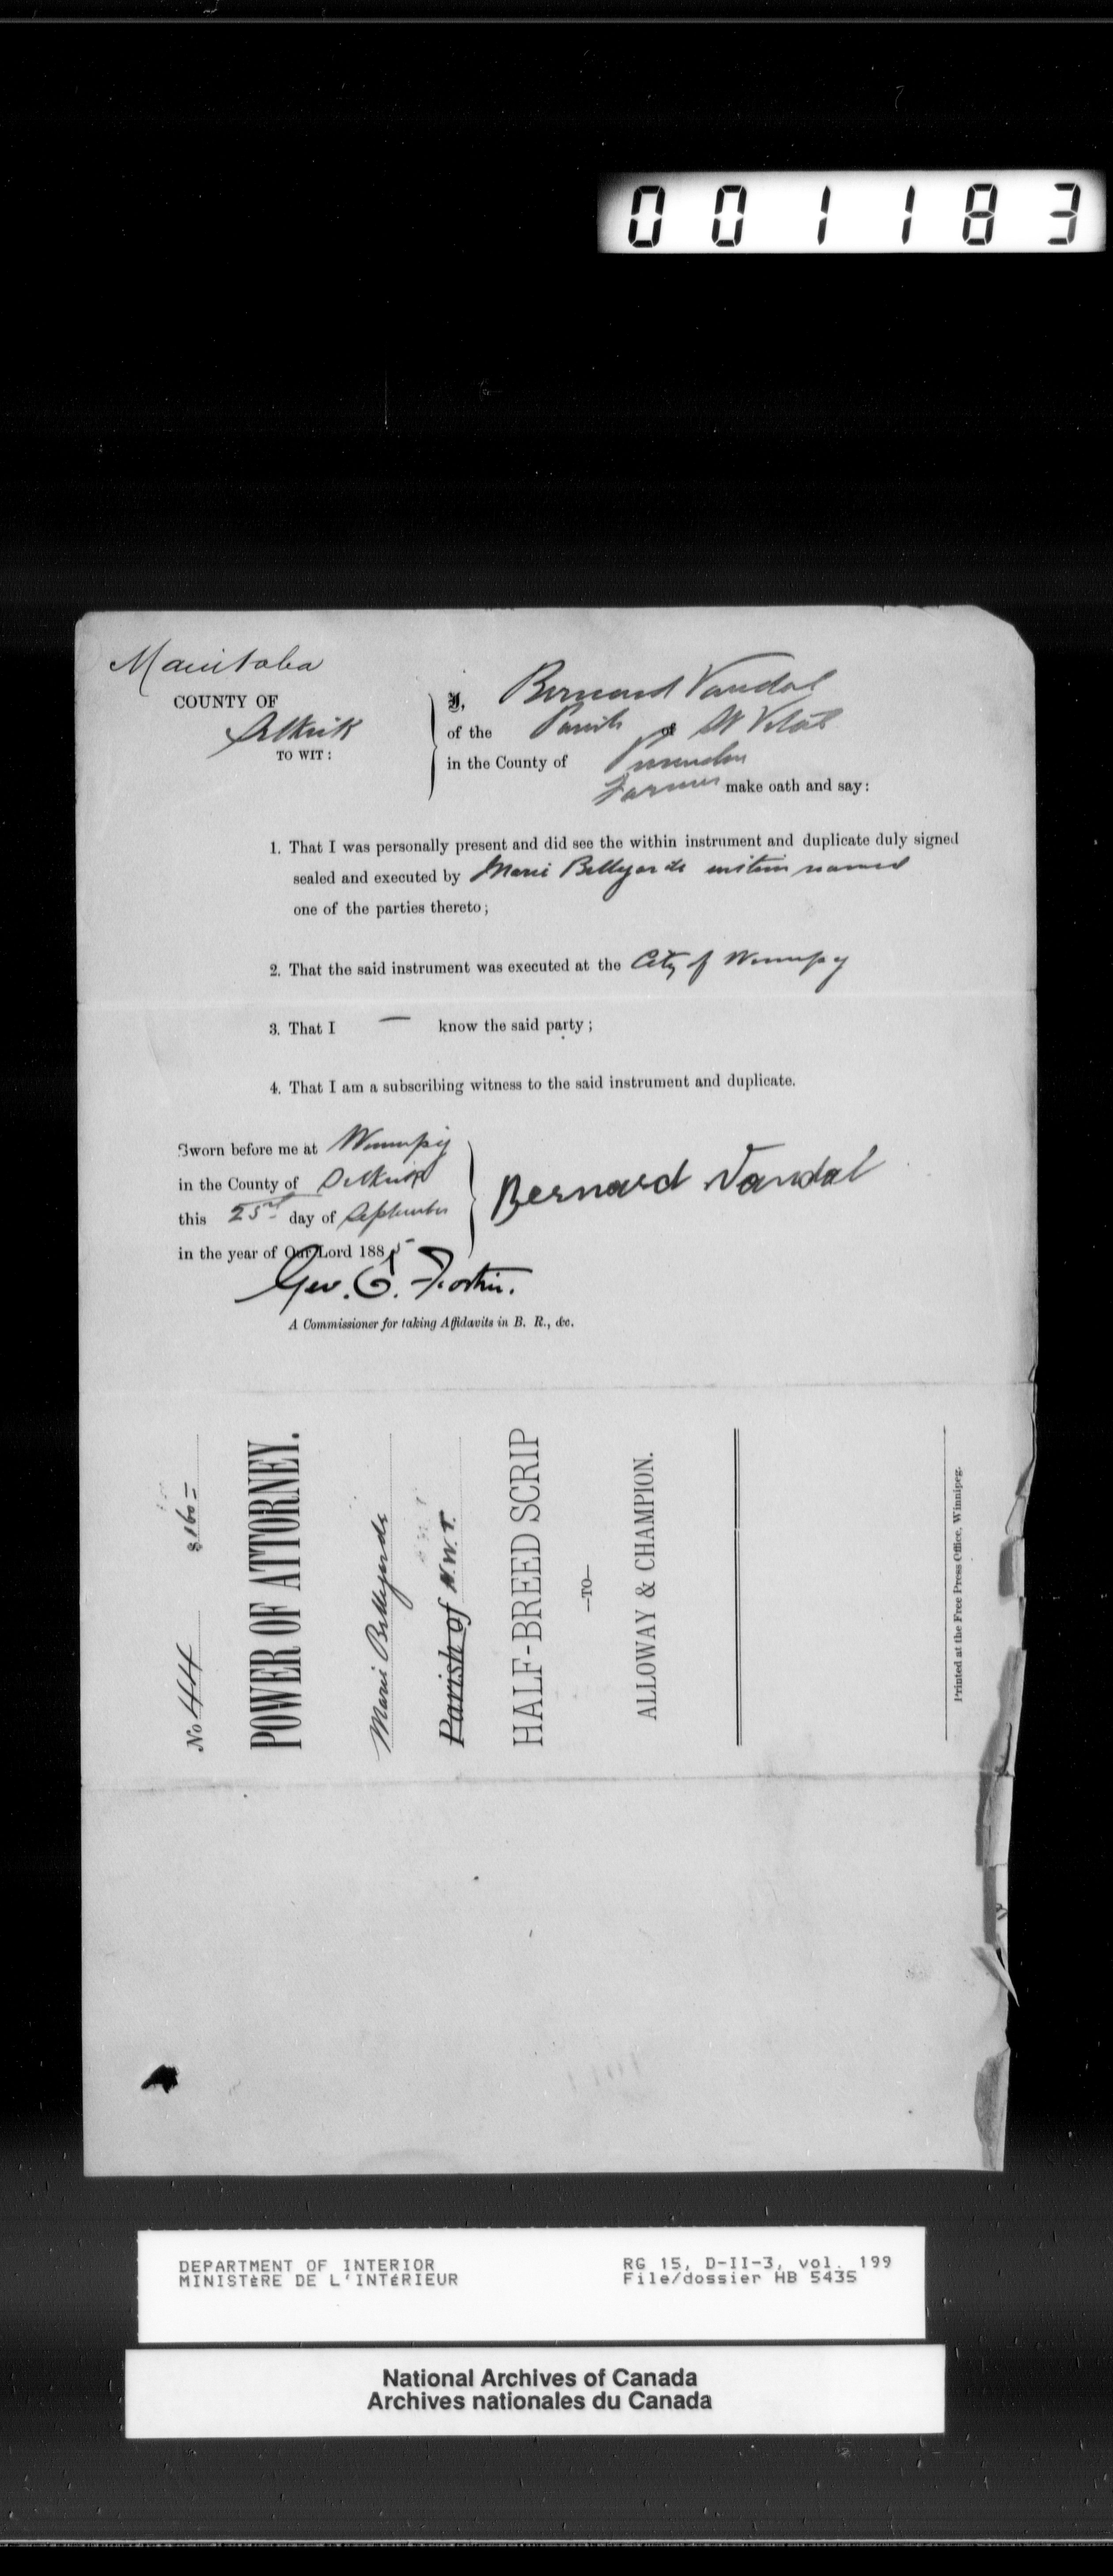 001183
Manitoba
COUNTY OF
Selkirk
TO WIT :
I, Bernard Vandal
of the Parish of St Vital
in the County of Provencher
Farmer make oath and say:
1. That I was personally present and did see the within instrument and duplicate duly signed
sealed and executed by Marie Bellegarde within named
one of the parties thereto;
2. That the said instrument was executed at the City of Winnipeg
3. That I — know the said party ;
4. That I am a subscribing witness to the said instrument and duplicate.
Sworn before me at Winnipeg
in the County of Selkirk
this 25th day of September
in the year of Our Lord 1885
Bernard Vandal
Geo. G. Fortin.
A Commissioner for taking Affidavits in B. R., &c.
No 44 $160=
POWER OF ATTORNEY.
Marie Bellegarde
Parish of N.W.T.
HALF-BREED SCRIP
—TO—
ALLOWAY & CHAMPION.
Printed at the Free Press Office, Winnipeg.
DEPARTMENT OF INTERIOR
MINISTÈRE DE L'INTÉRIEUR
RG 15, D-II-3, vol. 199
File/dossier HB 5435
National Archives of Canada
Archives nationales du Canada